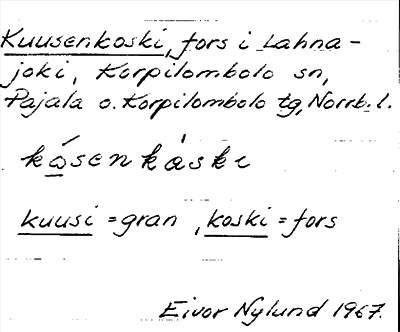 Kuusenkoski, fors i Lahna-
joki, Korpilombolo sn,
Pajala o. Korpilombolo tg, Norrb. l.
kósenkåske
kuusi = gran, koski = fors
Eivor Nylund 1967.